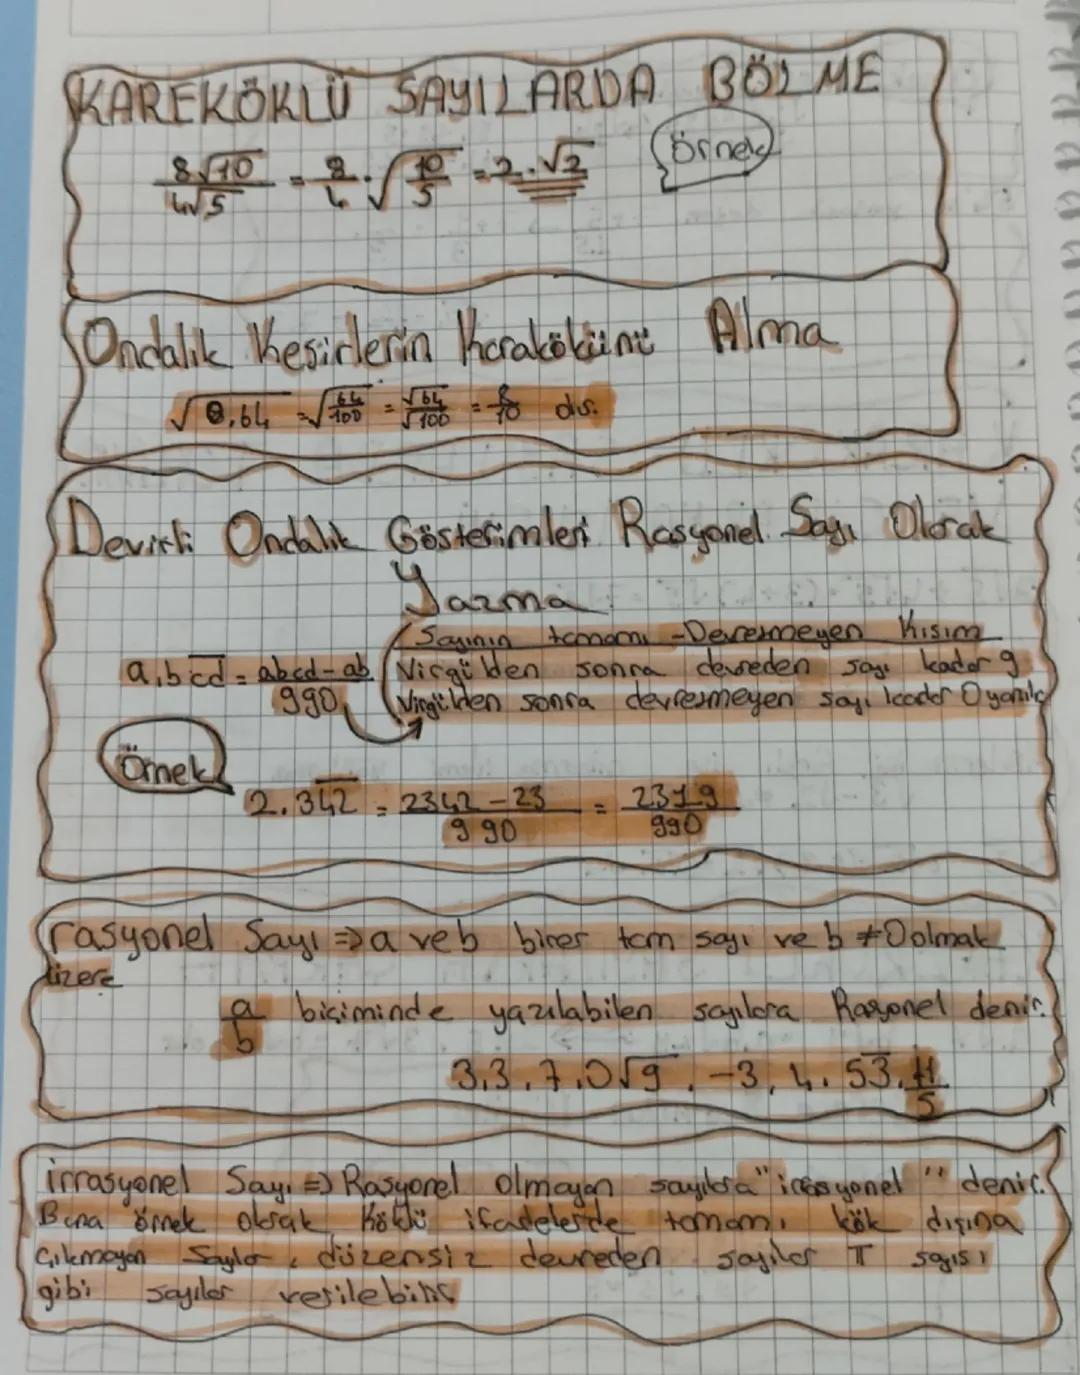 KAREKÖKLÜ SAYILARDA BÖLME
8√10/4√5 = 8/4 · √10/5 = 2·√2 Örnek
Ondalık Kesirlerin Karakökünü Alma
√0,64 = √64/100 = √64/√100 = 8/10 dıs.
Devirli Ondalık Gösterimleri Rasyonel Sayı Olarak
Yazma
Sayının tamamı - Devremeyen Kısım
a,bc̅d̅ = abcd-ab/990 Virgülden sonra devreden sayı kadar 9
Virgülden sonra devremeyen sayı kadar 0 yazılır
Örnek
2.34̅2̅ = 2342-23/990 = 2319/990
rasyonel Sayı ⇒ a ve b birer tam sayı ve b ≠ 0 olmak
üzere
a/b biçiminde yazılabilen sayılara Rasyonel denir.
3,3,7,0√9, -3, 4,5̅3̅, 11/5
irrasyonel Sayı ⇒ Rasyonel olmayan sayılara "irrasyonel" denir.
Buna örnek olarak Köklü ifadelerde tamamı kök dışına
Çıkmayan Sayılar, düzensiz devreden sayılar π sayısı
gibi sayılar verilebilir